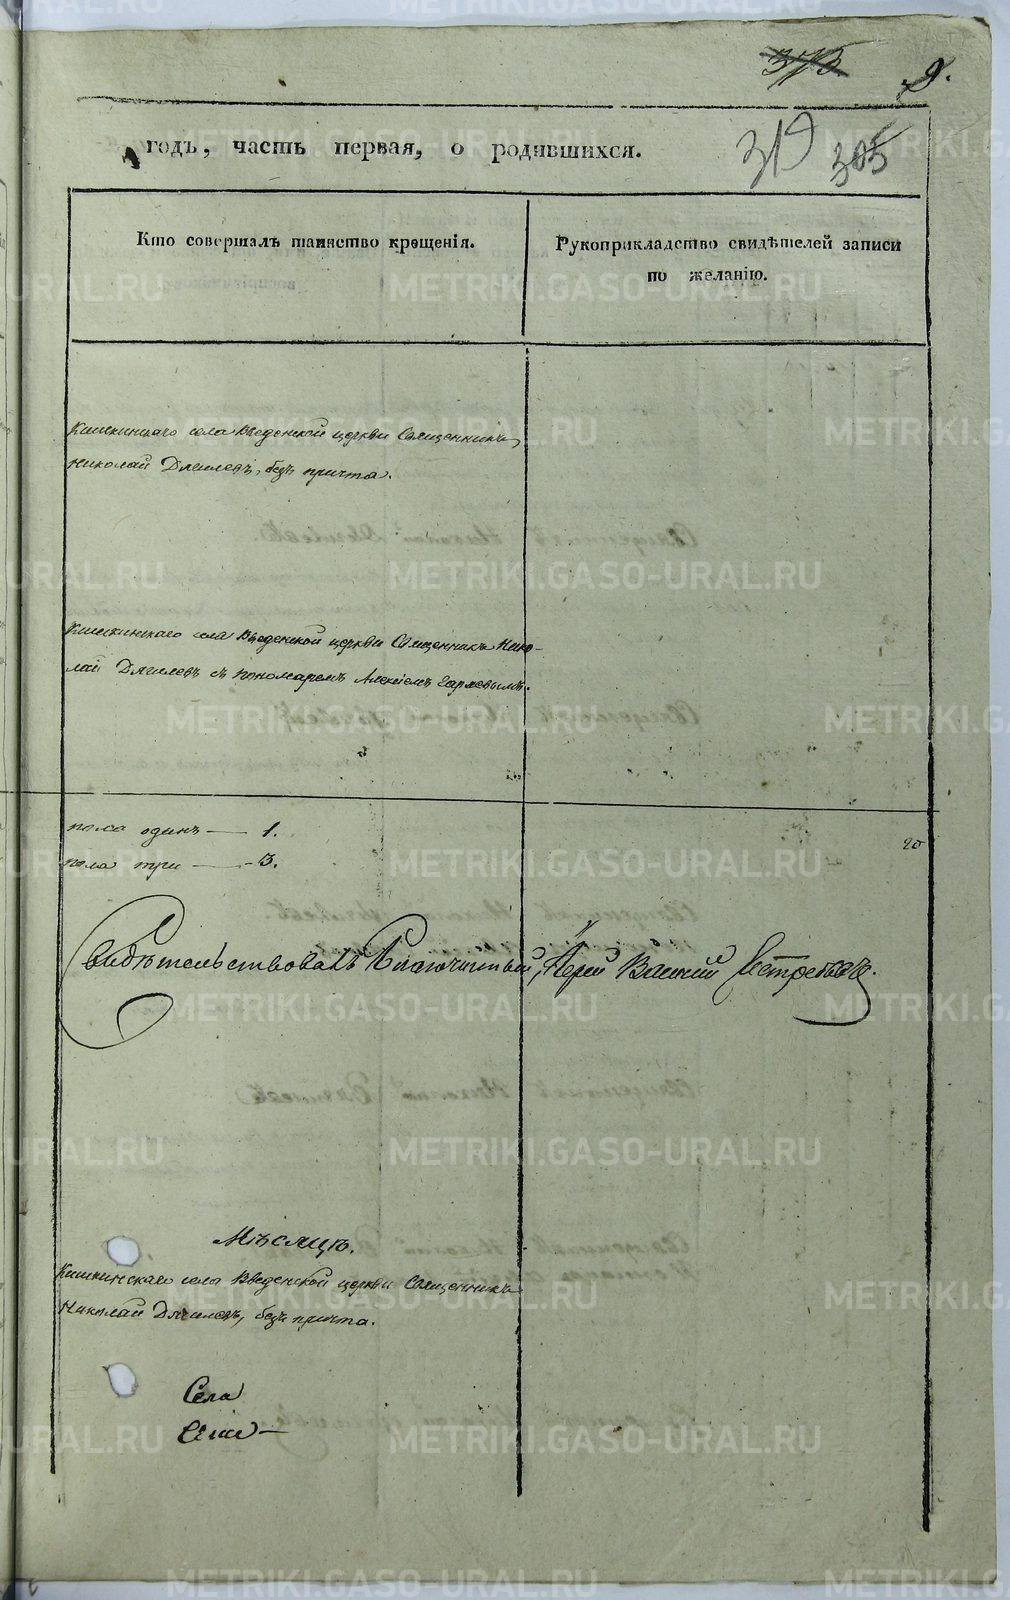 375 9.
годъ, часть первая, о родившихся.
319 305
Кто совершалъ таинство крещенія.
Рукоприкладство свидѣтелей записи
по желанію.
Кишкинскаго села Введенской церкви Священникъ
Николай Дягилевъ, безъ причта.
Кишкинскаго села Введенской церкви Священникъ Нико-
лай Дягилевъ съ пономаремъ Алексѣемъ
пола одинъ — 1.
пола три — 3.
Свидѣтельствовалъ Благочинный, Іерей Василій Ястребовъ.
Мѣсяцъ.
Кишкинскаго села Введенской церкви Священникъ
Николай Дягилевъ, безъ причта.
Села
METRIKI.GASO-URAL.RU